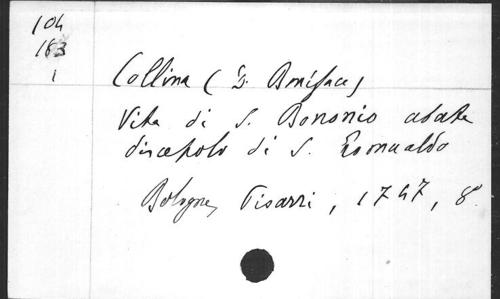 104
183
1
Collina (D. Boniface)
Vita di S. Bononio abate
discepolo di S. Romualdo
Bologne, Pisarri, 1747, 8°